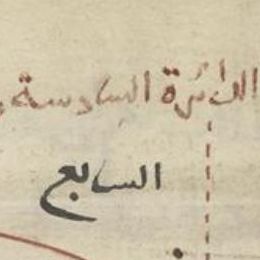 الدائرة السادسة
السابع